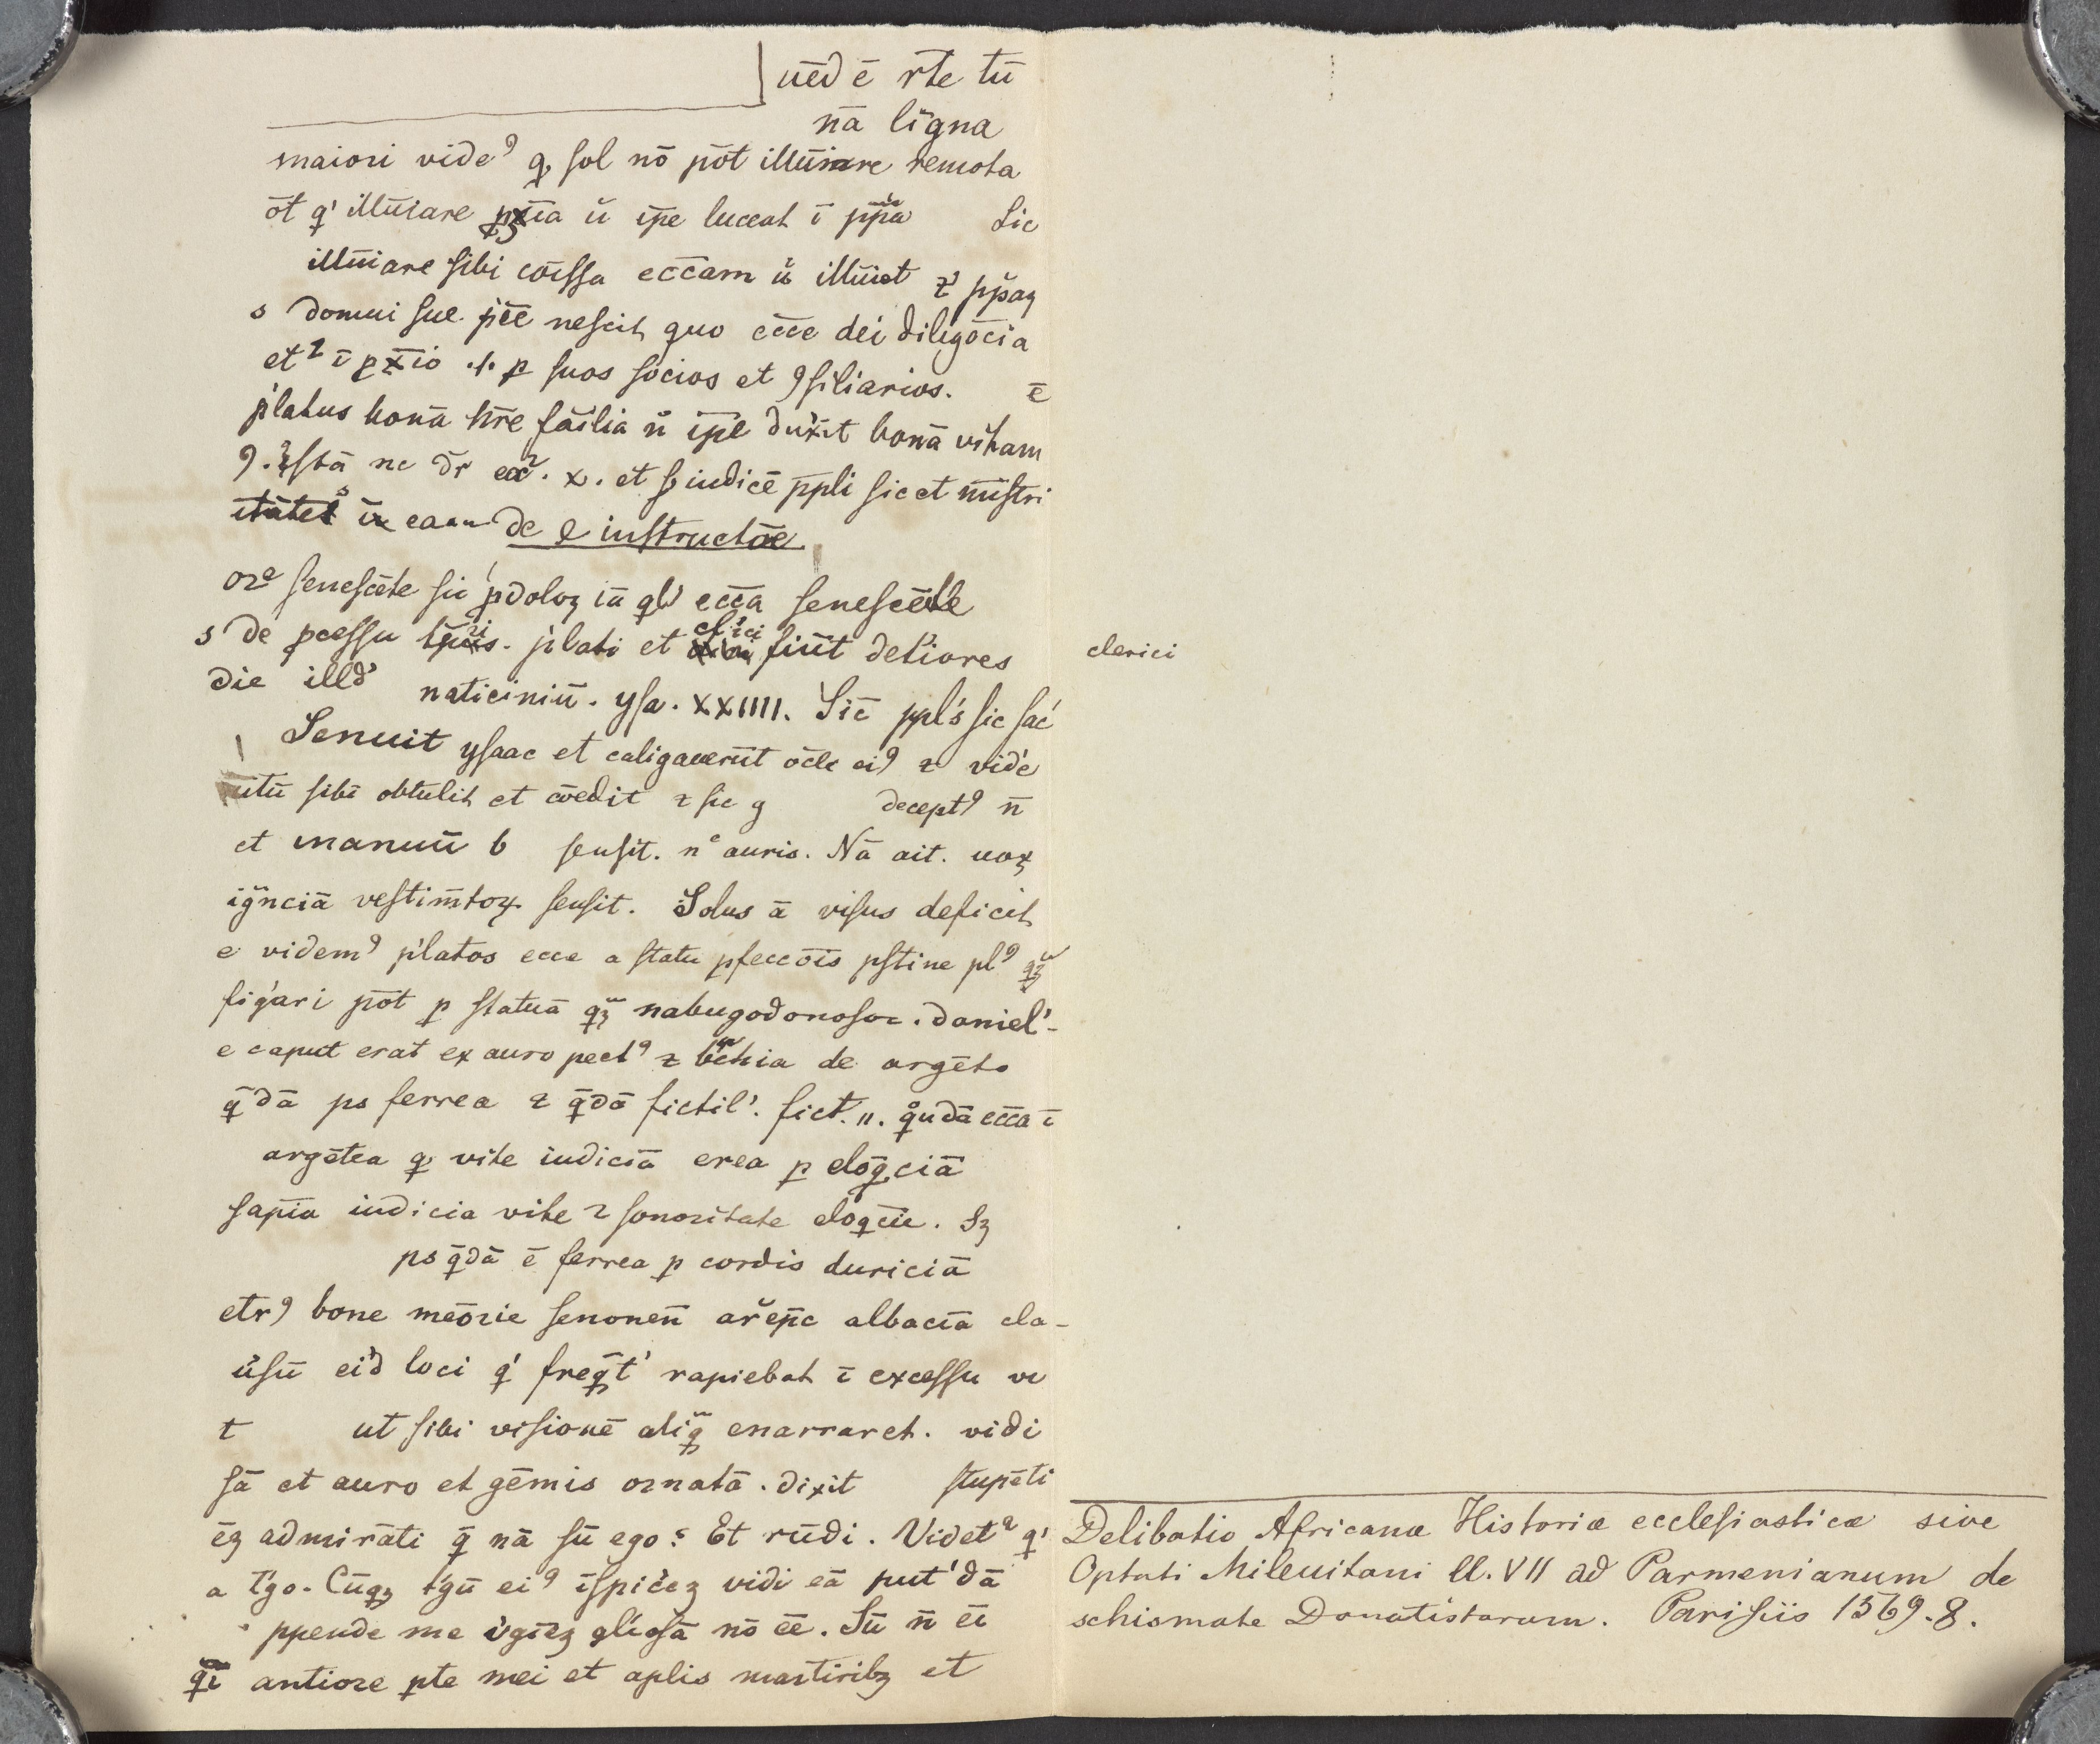 ūed ē rte tū
nā ligna
maiori videꝰ ꝙ sol nō pōt illūinare remota
ōt qͥ illūiare ꝓxīa ū ip̄e luceat ī pp̄a Sic
illūiare sibi cōissa eccām ū illūiet ⁊ pp̄aꝫ
s domui sue p̄ēē nescit quo eccē dei diligēcia
et ī p̄xio .i. ꝑ suos socios et ꝯsiliarios. ē
p̄latus bonā hr̄e fāilia n̄ ip̄e dux̄it bonā vitam
ꝯ.istā nc dr̄ ecc. x. et s iudicē pp̄li sic et mīstri
in eam de e instructōe
ore senescēte sic pdoloꝫ iā ql' eccā senescēte
s de ꝓcessu tp̄ris. p̄lati et cl'ici fiūt det'iores
clerici
die illd' naticiniū. ysa. XXIIII. Sic ppl's sic sac'
Senuit ysaac et caligauerūt ocl'i eiꝰ ⁊ vide
utū sibi obtulit et cōedit ⁊ sic g deceptꝰ n̄
et manuū b sensit. nͨ auris. Nā ait. uox
ign̄ciā vestim̄toꝝ sensit. Solus ā visus deficit
e videmꝰ p̄latos ecce a statu ꝑfeccōis pstine plꝰ qꝫ
fig'ari pōt ꝑ statuā qꝫ nabugodonosor. daniel'-
e caput erat ex auro pectꝰ ⁊ b'chia de argēto
q̄dā ps ferrea ⁊ q̄dā fictil'. fict. 11. qͦudā eccā ī
argētea ꝙ vite iudiciā erea ꝑ eloq̄ciā
sapīa iudicia vite ⁊ sonoritate eloq̄cie. Sꝫ
ps q̄dā ē ferrea ꝑ cordis duriciā
etrꝰ bone meōrie senonen̄ ar̄ep̄c albaciā cla-
ūsū eid' loci q' freq̄t' rapiebat ī excessu ve
t ut sibi visionē aliq̄ enarraret. vidi
sā et auro et gēmis ornatā. dixit stupēti
ēꝫ admirāti q̄ nā sū ego? Et rūdi. Videtͬ q'
a t'go. Cūqꝫ t'gū eiꝰ īspic'eꝫ vidi eā put'dā
ppende me v'ginꝫ gl'iosā nō ēē. Sū n̄ ēī
qī antiore ꝑte mei et aplis martiribꝫ et
Delibatio Africanæ Historiæ ecclesiasticæ sive
Optati Mileuitani ll. VII ad Parmenianum de
schismate Donatistarum. Parisiis 1569. 8.